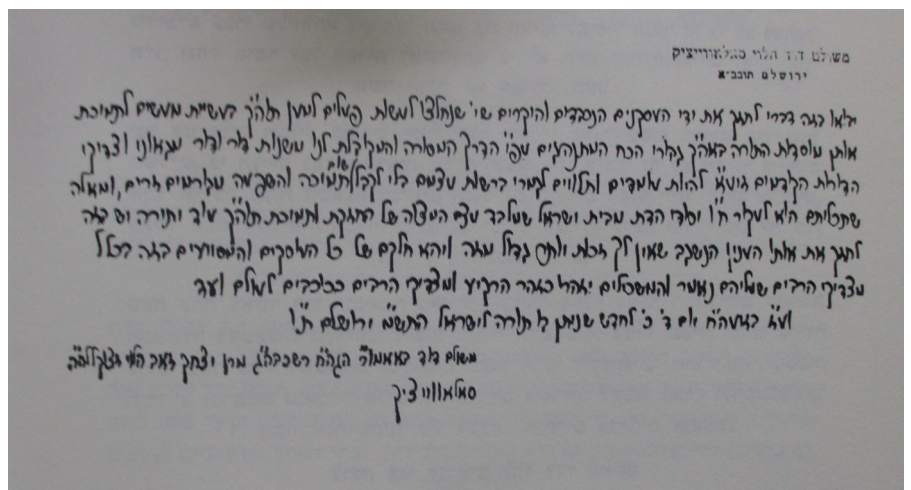 משולם דוד הלוי סאלאווייציק
ירושלים תובב"א
יבואו בזה דברי לחזק את ידי העסקנים הנכבדים והיקרים שי' שנחלצו לעשות פעלים למען תוה"ק בעשיית מעשים לתמיכת
אותן מוסדות התורה באה"ק גבורי הכח המתנהגים עפ"י הדרך המסורה והמקובלת לנו משנות דור ודור מגאוני וצדיקי
הדורות הקדמים זיע"א להיות עומדים ותלויים לגמרי ברשות עצמם בלי לקבל שום תמיכה והשפעה מגורמים זרים, ומאלה
שתכליתם היא לעקור ח"ו יסודי הדת מבית ישראל שמלבד עצם המצוה של החזקת ותמיכת תוה"ק עוד יתירה יש בזה
לחזק את אותו הענין הנשגב שאין לך זכות יותר גדול מזה ויהא חלקם של כל העוסקים והמסייעים בזה בכלל
מצדיקי הרבים שעליהם נאמר והמשכילים יזהירו כזוהר הרקיע ומצדיקי הרבים ככוכבים לעולם ועד
וע"ז בעה"ח יום ד' כ' לחדש שניתן בו תורה לישראל ירושלים ת"ו
משולם דוד באאמו"ר הגה"ח רשכבה"ג מרן יצחק זאב הלוי זצוקללה"ה
סאלאווייציק